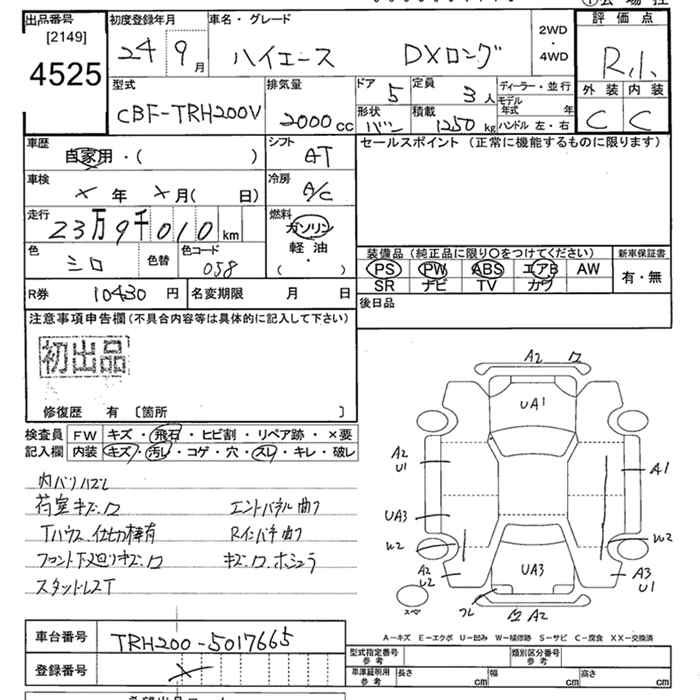 出品番号
[2149]
4525
初度登録年月
24 9月
車名・グレード
ハイエース DXロング
2WD
・
4WD
評価点
R,1、
外装 内装
C C
型式
CBF-TRH200V
排気量
2000cc
ドア 5
定員 3人
ディーラー・並行
モデル年式 年
形状 バン
積載 1250kg
ハンドル 左・右
車歴
自家用・( )
シフト
AT
車検
× 年 × 月( 日)
冷房
A/C
走行
23万9千010km
燃料
ガソリン
軽油
( ・ )
色
シロ
色替
色コード
058
R券 10430円
名変期限 月 日
セールスポイント (正常に機能するものに限ります)
装備品 (純正品に限り〇をつけてください)
新車保証書
PS PW ABS エアB AW
有・無
SR ナビ TV カワ
後日品
注意事項申告欄(不具合内容等は具体的に記入して下さい)
初出品
修復歴 有 〔箇所 〕
検査員
記入欄
FW キズ・飛石・ヒビ割・リペア跡・×要
内装 キズ・汚レ・コゲ・穴・スレ・キレ・破レ
内バリハズレ
荷室キズ.ワ エンドパネル曲フ
Tハウス.仕切棒有 Rインバチ曲フ
フロント下廻りキズ.ワ キズ.ワ.ホシュウ
スタットレスT
A2 ワ
UA1
A2
U1
A1
UA3
W2
W2
A2
W2
UA3
A3
U1
フレ
ワ A2
スペ
A-キズ E-エクボ U-凹み W-補修跡 S-サビ C-腐食 XX-交換済
車台番号 TRH200-5017665
登録番号 ×
型式指定番号
参考
類別区分番号
参考
車庫証明用
参考
長さ cm
幅 cm
高さ cm